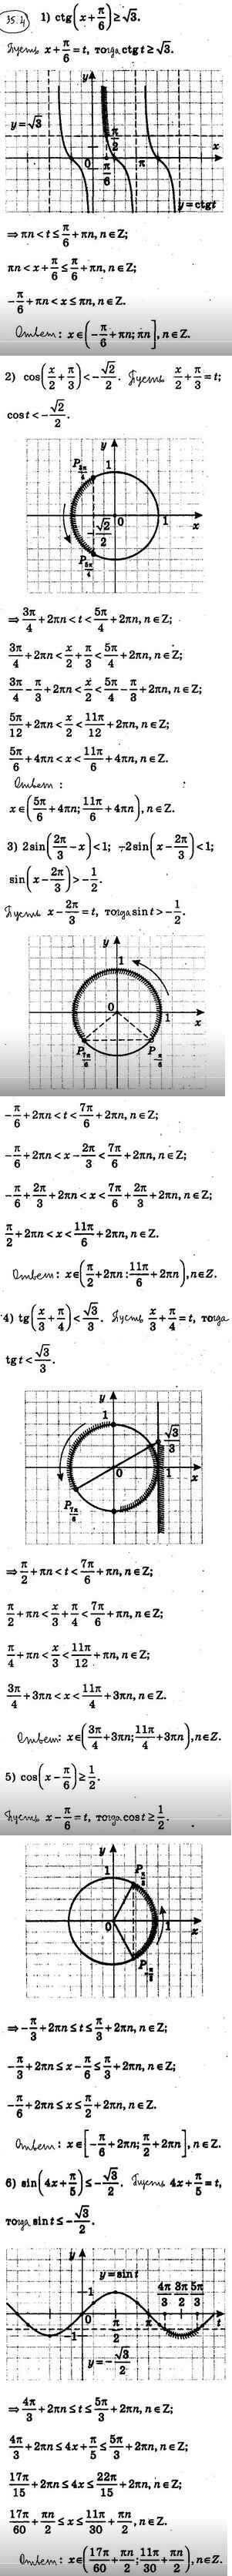 35.4) 1) ctg(x+π/6)≥√3.
Пусть x+π/6=t, тогда ctg t≥√3.
y
y=√3
π/2
0 π/6 π x
y=ctgt
⇒πn<t≤π/6+πn, n∈Z;
πn<x+π/6≤π/6+πn, n∈Z;
-π/6+πn<x≤πn, n∈Z.
Ответ: x∈(-π/6+πn; πn], n∈Z.
2) cos(x/2+π/3)<-√2/2. Пусть x/2+π/3=t;
cost<-√2/2.
y
1
P3π/4
-√2/2 0 1 x
P5π/4
⇒3π/4+2πn<t<5π/4+2πn, n∈Z;
3π/4+2πn<x/2+π/3<5π/4+2πn, n∈Z;
3π/4-π/3+2πn<x/2<5π/4-π/3+2πn, n∈Z;
5π/12+2πn<x/2<11π/12+2πn, n∈Z;
5π/6+4πn<x<11π/6+4πn, n∈Z.
Ответ:
x∈(5π/6+4πn; 11π/6+4πn), n∈Z.
3) 2sin(2π/3-x)<1; -2sin(x-2π/3)<1;
sin(x-2π/3)>-1/2.
Пусть x-2π/3=t, тогда sint>-1/2.
y
1
0 1 x
P7π/6 P-π/6
-π/6+2πn<t<7π/6+2πn, n∈Z;
-π/6+2πn<x-2π/3<7π/6+2πn, n∈Z;
-π/6+2π/3+2πn<x<7π/6+2π/3+2πn, n∈Z;
π/2+2πn<x<11π/6+2πn, n∈Z.
Ответ: x∈(π/2+2πn; 11π/6+2πn), n∈Z.
4) tg(x/3+π/4)<√3/3. Пусть x/3+π/4=t, тогда
tgt<√3/3.
y
1
√3/3
0 1 x
P7π/6
⇒π/2+πn<t<7π/6+πn, n∈Z;
π/2+πn<x/3+π/4<7π/6+πn, n∈Z;
π/4+πn<x/3<11π/12+πn, n∈Z;
3π/4+3πn<x<11π/4+3πn, n∈Z.
Ответ: x∈(3π/4+3πn; 11π/4+3πn), n∈Z.
5) cos(x-π/6)≥1/2.
Пусть x-π/6=t, тогда cost≥1/2.
y
1 Pπ/3
0 1 x
P-π/3
⇒-π/3+2πn≤t≤π/3+2πn, n∈Z;
-π/3+2πn≤x-π/6≤π/3+2πn, n∈Z;
-π/6+2πn≤x≤π/2+2πn, n∈Z.
Ответ: x∈[-π/6+2πn; π/2+2πn], n∈Z.
6) sin(4x+π/5)≤-√3/2. Пусть 4x+π/5=t,
тогда sint≤-√3/2.
y
y=sint
1 4π/3 3π/2 5π/3
0 π/2 π t
-1
y=-√3/2
⇒4π/3+2πn≤t≤5π/3+2πn, n∈Z;
4π/3+2πn≤4x+π/5≤5π/3+2πn, n∈Z;
17π/15+2πn≤4x≤22π/15+2πn, n∈Z;
17π/60+πn/2≤x≤11π/30+πn/2, n∈Z.
Ответ: x∈(17π/60+πn/2; 11π/30+πn/2), n∈Z.